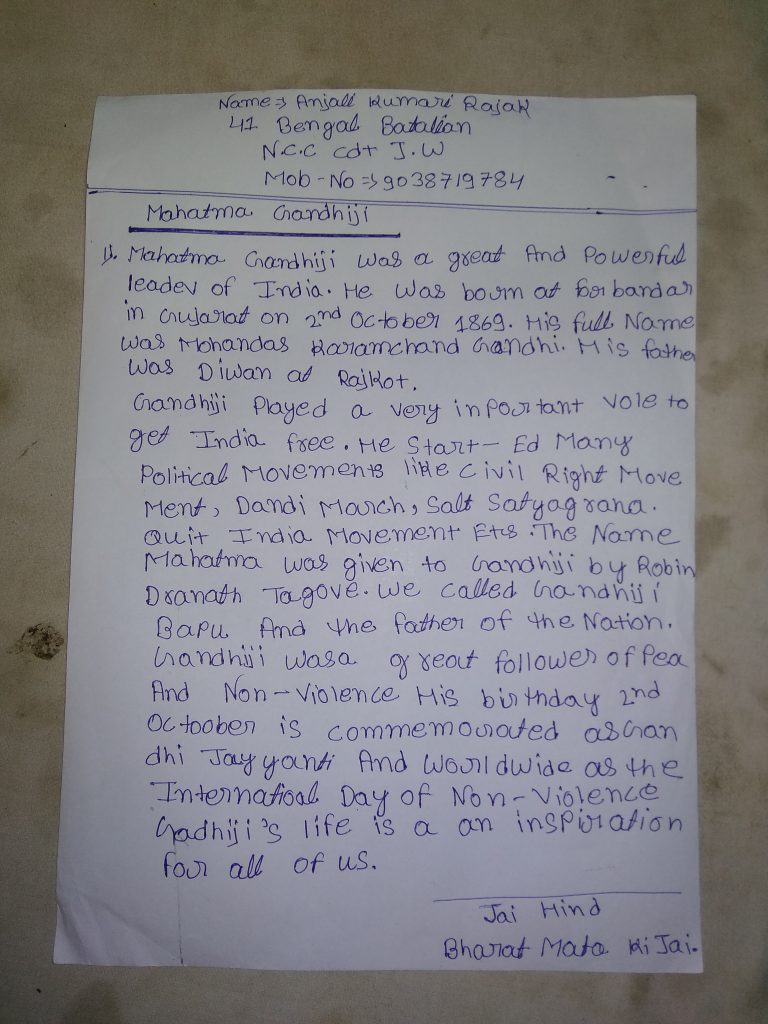 Name ⇒ Anjali Kumari Rajak
41 Bengal Batalian
N.C.C cdt J.W
Mob-No ⇒ 9038719784
Mahatma Gandhiji
1). Mahatma Gandhiji was a great And Powerful
leader of India. He was bourn at Porbandar
in Gujarat on 2nd October 1869. His full Name
was Mohandas Karamchand Gandhi. His father
was Diwan at Rajkot.
Gandhiji Played a very inpourtant role to
get India free. He Start-Ed Many
Political Movements like Civil Right Move
Ment, Dandi March, Salt Satyagrana.
Quit India Movement Etc. The Name
Mahatma was given to Gandhiji by Robin
Dranath Tagore. We called Gandhiji
Bapu And the father of the Nation.
Gandhiji wasa great follower of Pea
And Non-Violence His birthday 2nd
Octoober is commemorated asGan
dhi Jayyanti And Worldwide as the
Internatioal Day of Non-Violence
Gadhiji's life is a an inspiration
for all of us.
Jai Hind
Bharat Mata Ki Jai.